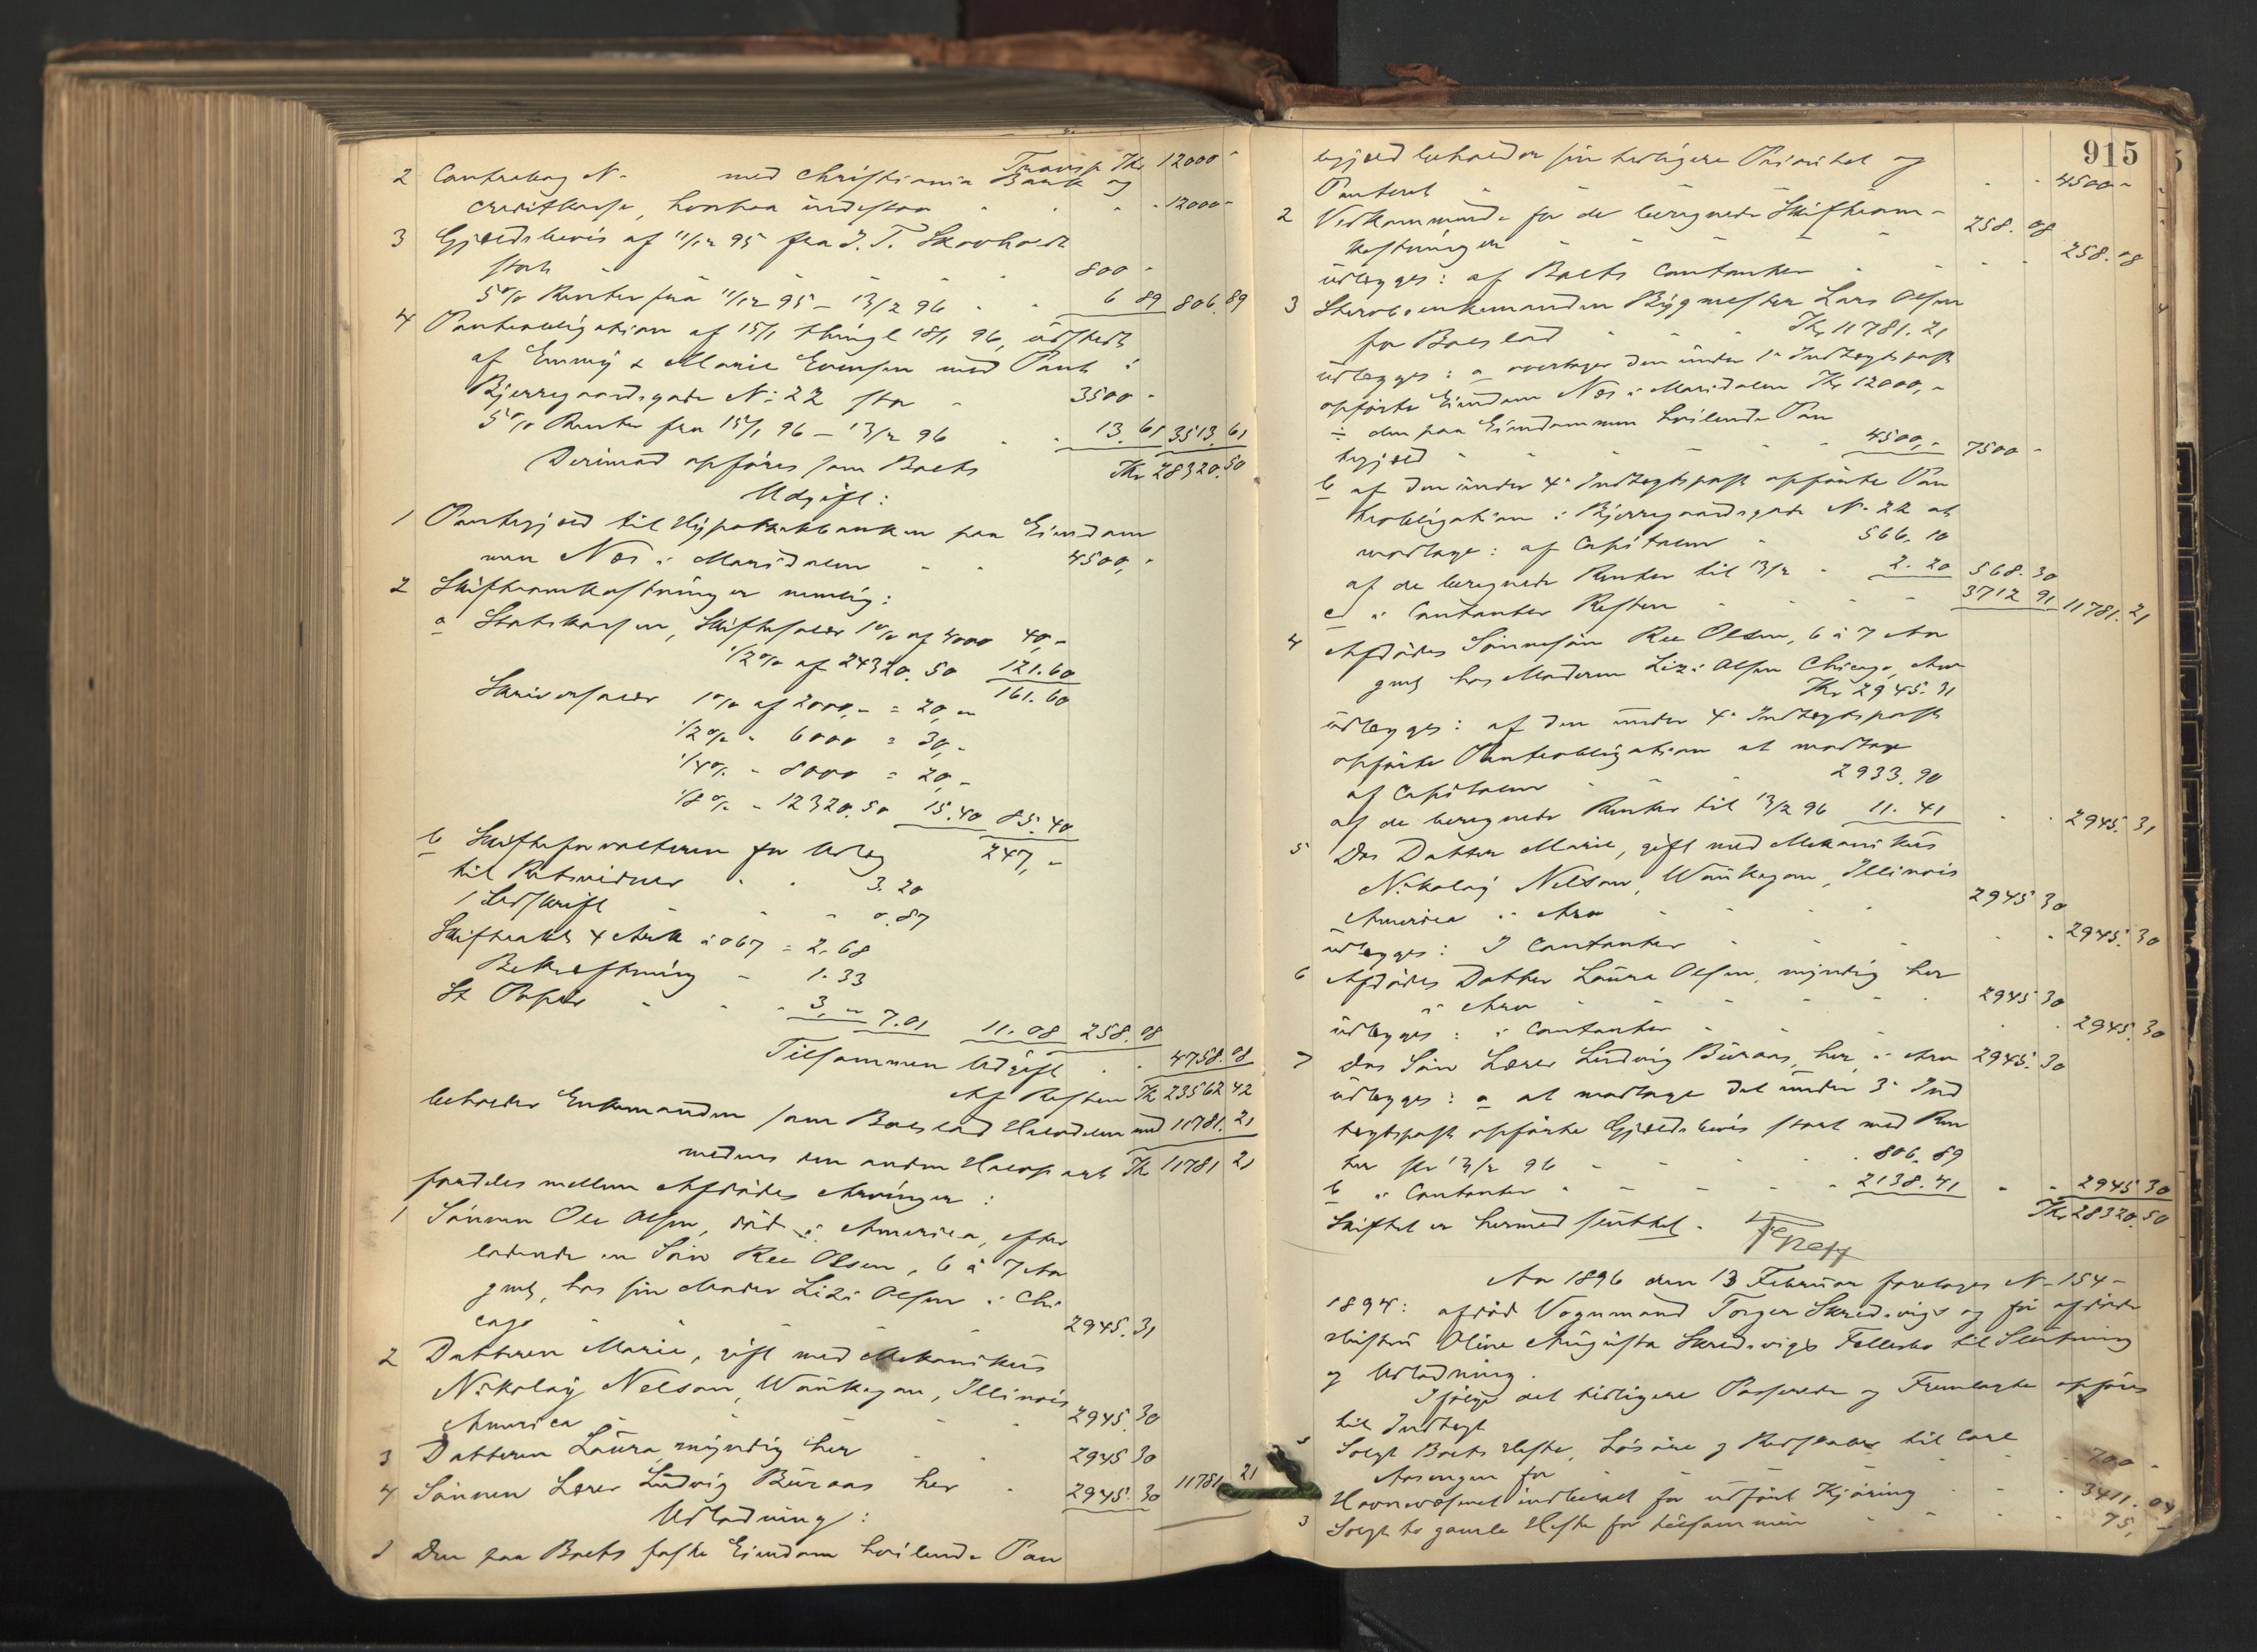 Transp Kr 12000 -
2 Contrabog N. med Christiania Bank og
Creditkasse, hvorpaa indestaar - - 12000 -
3 Gjældsbevis af 11/12 95 fra J. T. Skovholt
stort - - - - 800 -
5% Renter fra 11/12 95 - 13/2 96 - - 6 89 806.89
4 Panteobligation af 15/1 thingl 18/1 96, udstedt
af Emmy & Marie Evensen med Pant i
Bjerregaardsgade N: 22 stor - 3500 -
5% Renter fra 15/1 96 - 13/2 96 - - 13.61 3513.61
Kr 28320.50
Derimod opføres som Boets
Udgift:
1 Pantegjæld til Hypothekbanken paa Eiendom
men Næs i Maridalen - - 4500,-
2 Skifteomkostninger nemlig:
a Statskassen, Skiftesalær 1% af 4000 40,-
1/2% af 24320.50 121.60
161.60
Skriversalær 1% af 2000,- = 20,-
1/2% - 6000 = 30,-
1/4% - 8000 = 20,-
1/8% - 12320.50 15.40 85.40
247,-
b Skifteforvalteren for Udlæg
til Retsvidner - - 3.20
1 Udskrift - - - 0.87
Skifteakt 4 Ark à 067 = 2.68
Bekræftning - 1.33
St Papir - - - 3,- 7.01 11.08 258.08
Tilsammen Udgift - - 4758.08
Af Resten Kr 23562 42
beholder Enkemanden som Boeslod Halvdelen med 11781.21
medens den anden Halvpart Kr 11781 21
fordeles mellem Afdødes Arvinger:
1 Sønnen Ole Olsen, død i America, efter
ladende en Søn Ree Olsen, 6 à 7 Aar
gml, hos sin Moder Lizi Olsen i Chi
cago - - - - 2945.31
2 Datteren Marie, gift med Mekanikus
Nikolay Nelson, Waukegan, Illinois
America - - - 2945.30
3 Datteren Laura, myndig her - - 2945 30
4 Sønnen Lærer Ludvig Buraas her - 2945.30 11781 21
Udlodning:
1 Den paa Boets faste Eiendom hvilende Pan
915
tegjæld beholder sin tidligere Prioritet og
Panteret - - - - - - 4500 -
2 Vedkommende for de beregnede Skifteom-
kostninger - - - - 258.08
udlægges: af Boets Contanter - - - 258.08
3 Stervboenkemanden Bygmester Lars Olsen
for Boeslod - - - Kr 11781.21
udlægges: a overtager den under 1° Indtægtspost
opførte Eiendom Næs i Maridalen Kr 12000,-
÷ den paa Eiendommen hvilende Pan
tegjæld - - - - - 4500,- 7500 -
b af den under 4° Indtægtspost opførte Pan
teobligation i Bjerregaardsgade N. 22 at
modtage: af Capitalen - 566.10
af de beregnede Renter til 13/2 - 2.20 568.30
c i Contanter Resten - - - 3712 91 11781.21
4 Afdødes Sønnesøn Ree Olsen, 6 à 7 Aar
gml hos Moderen Lizi Olsen Chicago, Arv
Kr 2945.31
udlægges: af den under 4° Indtægtspost
opførte Panteobligation at modtage
af Capitalen - - - 2933.90
af de beregnede Renter til 13/2 96 11.41 - - 2945.31
5 Das Datter Marie, gift med Mekanikus
Nikolay Nelson, Waukegan, Illinois
America i Arv - - - 2945 30
udlægges: I Contanter - - - - 2945.30
6 Afdødes Datter Laura Olsen, myndig her
i Arv - - - - - 2945 30
udlægges: i Contanter - - - - 2945.30
7 Das Søn Lærer Ludvig Buraas, her, i Arv 2945.30
udlægges: a at modtage det under 3° Ind
tægtspost opførte Gjældsbevis stort med Ren
ter til 13/2 96 - - - - 806.89
b i Contanter - - - - 2138.41 - - 2945 30
Kr 28320.50
Skiftet er hermed sluttet.
Aar 1896 den 13 Februar foretoges N- 154-
1894: afdød Vognmand Torger Skredsvigs og før afdøde
Hustru Oline Augusta Skredsvigs Fællesbo til Slutning
og Udlodning.
Ifølge det tidligere Passerede og Fremlagte opføres
til Indtægt
Solgt Boets Heste, Løsøre og Redskaber til Carl
Aasengen for - - - - 700 -
Havnevæsenet indbetalt for udført Kjøring - - - 3411.04
3 Solgt to gamle Heste for tilsammen - - - - 75,-